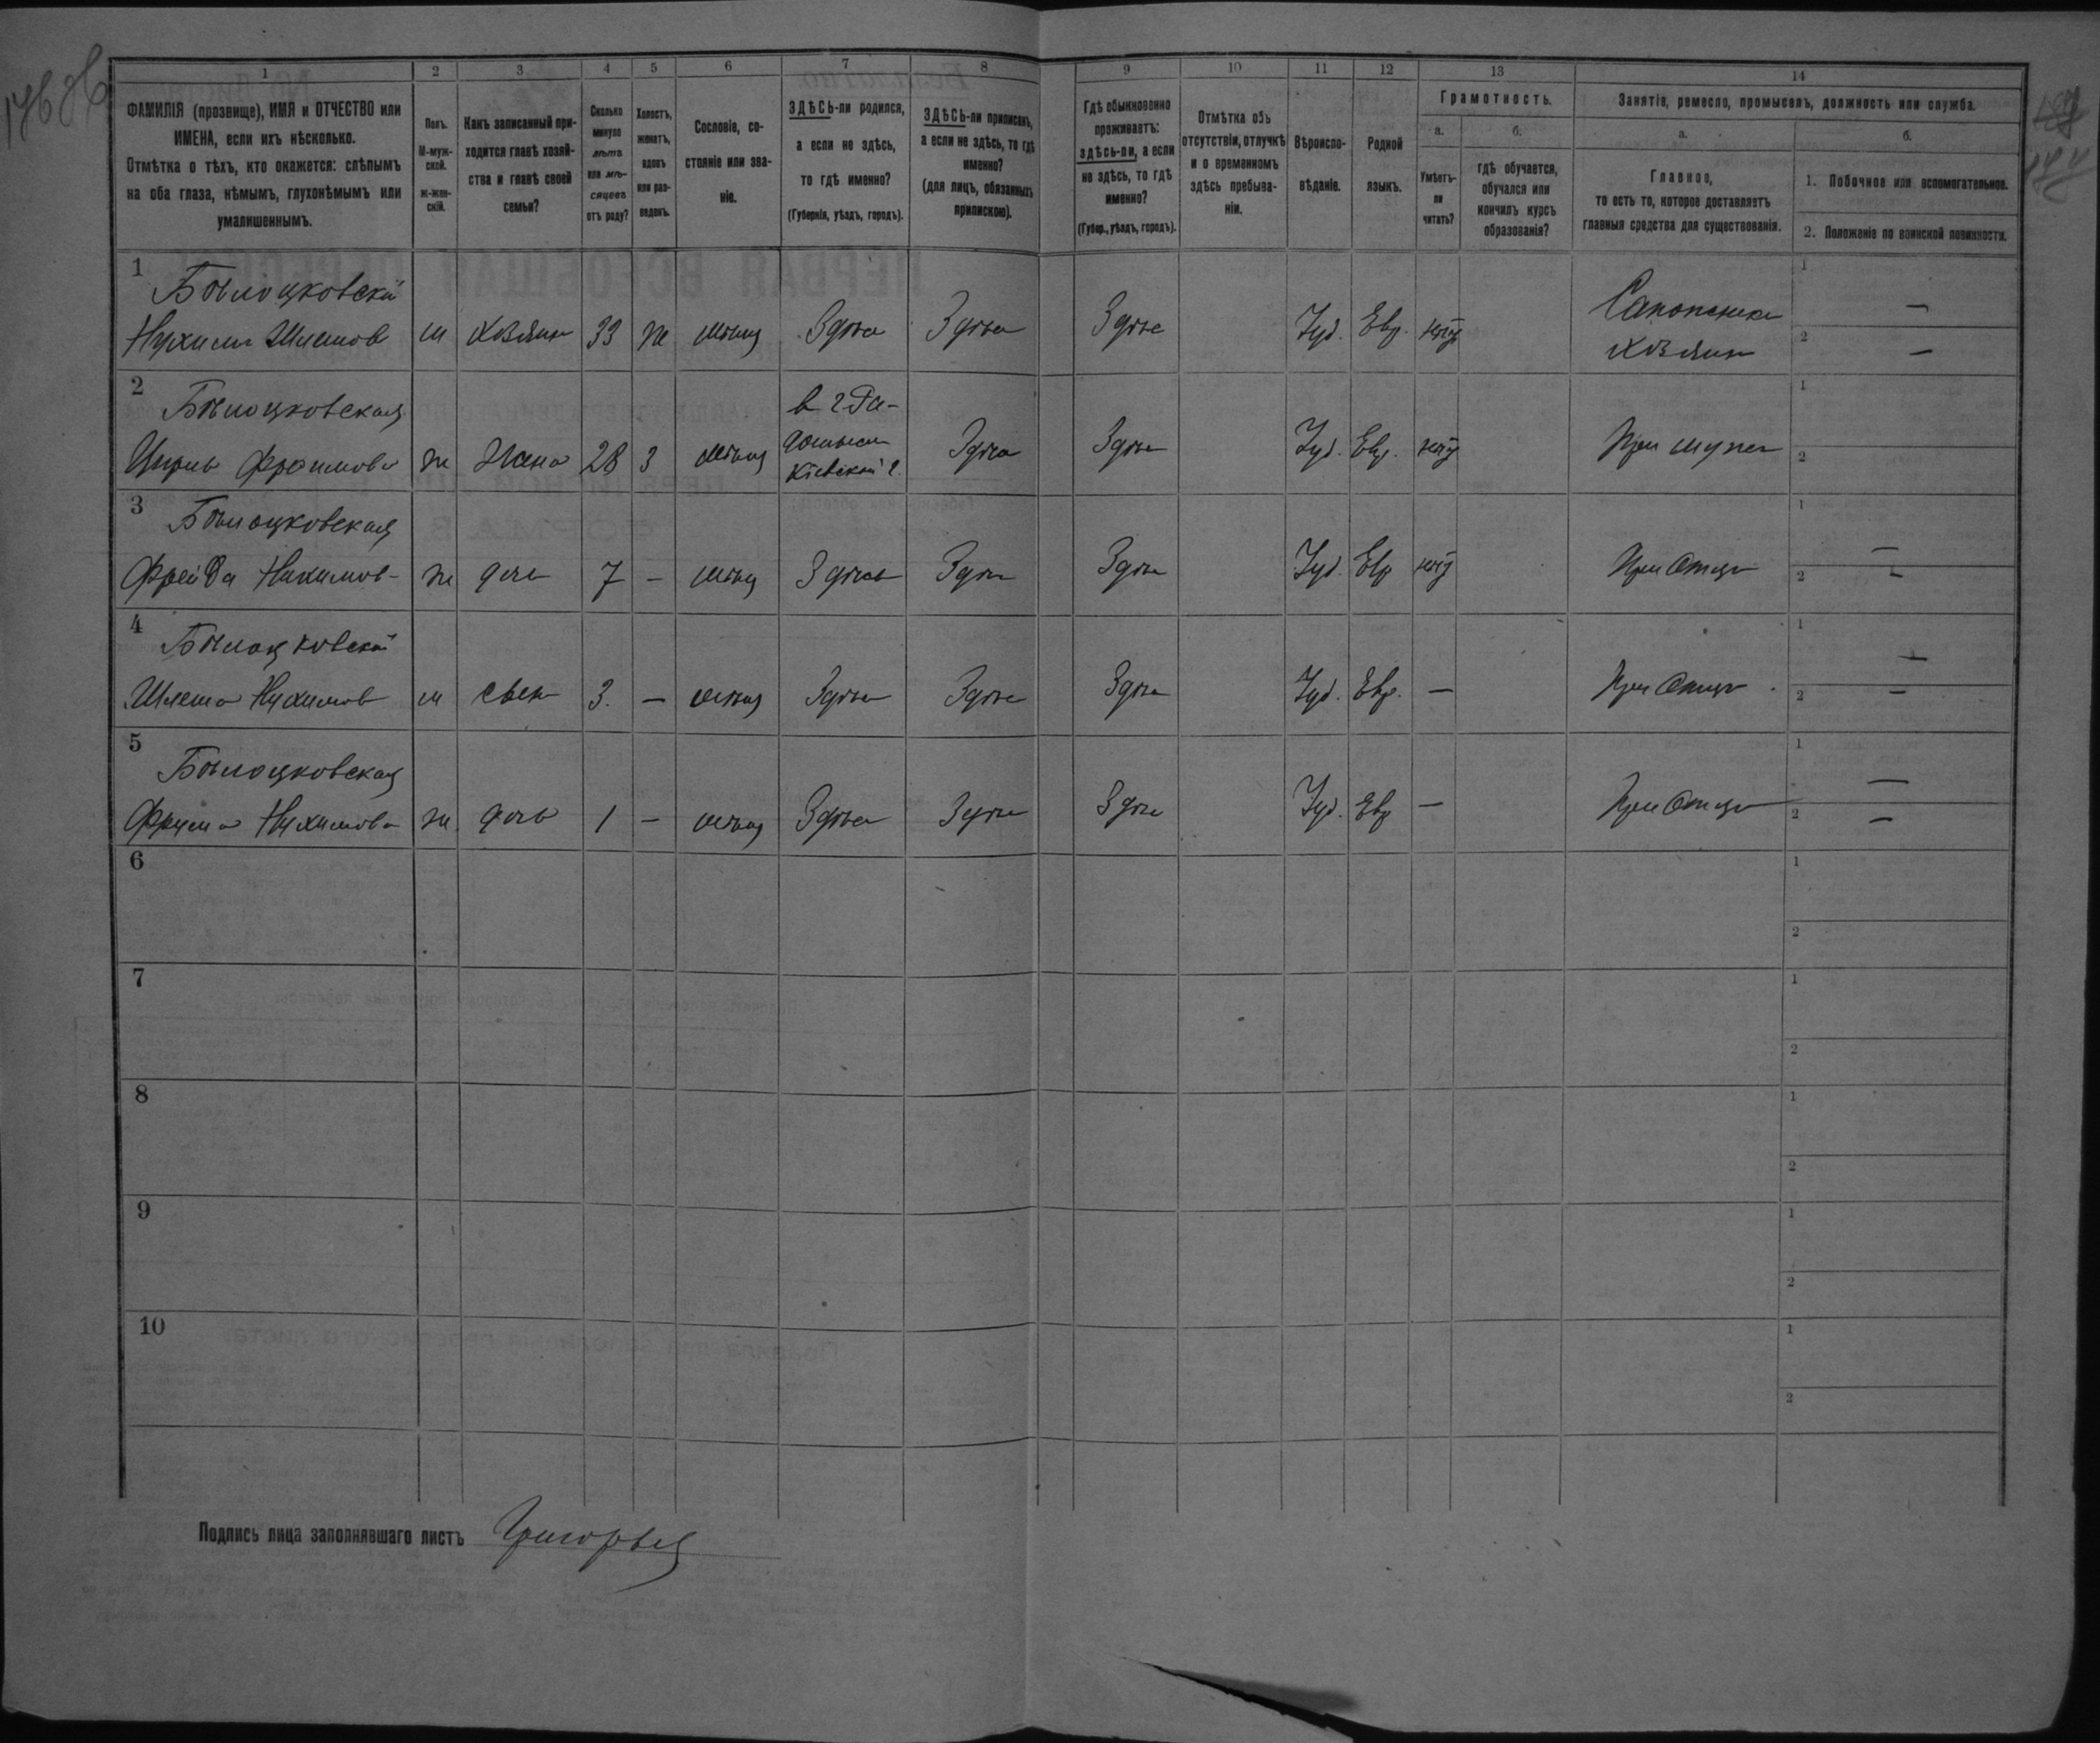 1 2 3 4 5 6 7 8 9 10 11 12 13 14
ФАМИЛІЯ (прозвище), ИМЯ и ОТЧЕСТВО или
ИМЕНА, если ихъ нѣсколько.
Отмѣтка о тѣхъ, кто окажется: слѣпымъ
на оба глаза, нѣмымъ, глухонѣмымъ или
умалишеннымъ.
Полъ.
М-муж-
ской.
ж-жен-
скій.
Какъ записанный при-
ходится главѣ хозяй-
ства и главѣ своей
семьи?
Сколько
минуло
лѣтъ
или мѣ-
сяцевъ
отъ роду?
Холостъ,
женатъ,
вдовъ
или раз-
веденъ.
Сословіе, со-
стояніе или зва-
ніе.
ЗДѢСЬ-ли родился,
а если не здѣсь,
то гдѣ именно?
(Губернія, уѣздъ, городъ).
ЗДѢСЬ-ли приписанъ,
а если не здѣсь, то гдѣ
именно?
(для лицъ, обязанныхъ
припискою).
Гдѣ обыкновенно
проживаетъ:
здѣсь-ли, а если
не здѣсь, то гдѣ
именно?
(Губер., уѣздъ, городъ).
Отмѣтка объ
отсутствіи, отлучкѣ
и о временномъ
здѣсь пребыва-
ніи.
Вѣроиспо-
вѣданіе.
Родной
языкъ.
Грамотность.
а.
Умѣетъ-
ли
читать?
б.
гдѣ обучается,
обучался или
кончилъ курсъ
образованія?
Занятіе, ремесло, промыселъ, должность или служба.
а.
Главное,
то есть то, которое доставляетъ
главныя средства для существованія.
б.
1. Побочное или вспомогательное.
2. Положеніе по воинской повинности.
1
Бѣлоцковскій
Нухимъ Шлемов м хозяин 33 ж мѣщ Здѣсь Здѣсь Здѣсь Іуд. Евр. нѣт
Сапожник
хозяин
1 —
2 —
2
Бѣлоцковская
Ципра Фроимова ж жена 28 з мѣщ
в г. Ра-
домысл
Кіевской г.
Здѣсь Здѣсь Іуд. Евр. нѣт При муже
1
2
3
Бѣлоцковская
Фрейда Нихимов- ж дочь 7 — мѣщ Здѣсь Здѣсь Здѣсь Іуд. Евр нѣт При Отцѣ
1 —
2 —
4
Бѣлоцковскій
Шлема Нухимов м сын 3. — мѣщ Здѣсь Здѣсь Здѣсь Іуд. Евр. — При Отцѣ
1 —
2 —
5
Бѣлоцковская
Фрума Нухимова ж дочь 1 — мѣщ Здѣсь Здѣсь Здѣсь Іуд. Евр — При Отцѣ
1 —
2 —
6
1
2
7
1
2
8
1
2
9
1
2
10
1
2
Подпись лица заполнявшаго листъ Григорьев